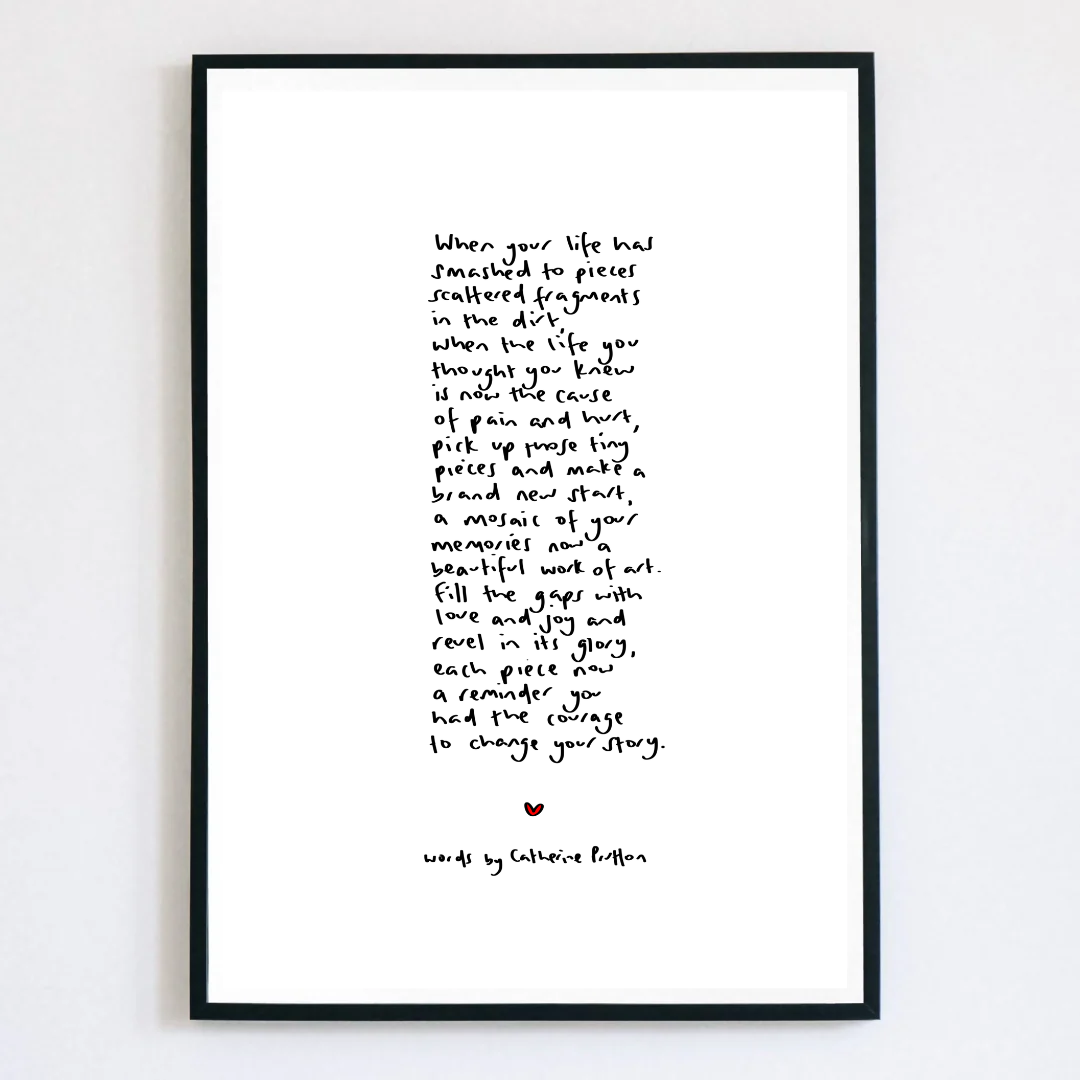 When your life has
smashed to pieces
scattered fragments
in the dirt,
when the life you
thought you knew
is now the cause
of pain and hurt,
pick up those tiny
pieces and make a
brand new start,
a mosaic of your
memories now a
beautiful work of art.
Fill the gaps with
love and joy and
revel in its glory,
each piece now
a reminder you
had the courage
to change your story.
words by Catherine Prutton